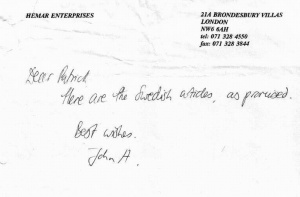 HEMAR ENTERPRISES
21A BRONDESBURY VILLAS
LONDON
NW6 6AH
tel: 071 328 4550
fax: 071 328 3844
Dear Patrick
Here are the Swedish articles, as promised.
Best wishes.
John A.